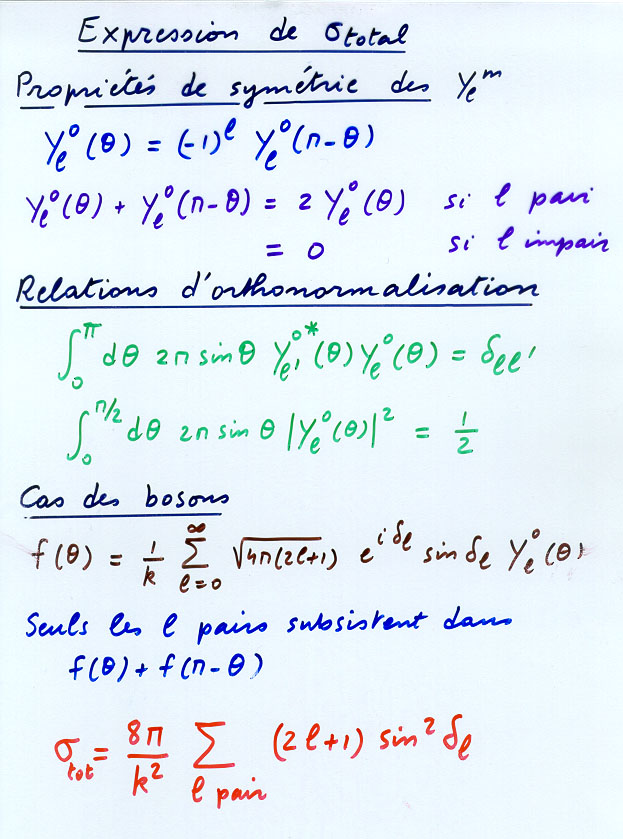 Expression de σtotal
Propriétés de symétrie des Yₗᵐ
Yₗ⁰(θ) = (-1)ˡ Yₗ⁰(π-θ)
Yₗ⁰(θ) + Yₗ⁰(π-θ) = 2 Yₗ⁰(θ) si l pair
= 0 si l impair
Relations d'orthonormalisation
∫₀^π dθ 2π sinθ Yₗ'⁰*(θ) Yₗ⁰(θ) = δₗₗ'
∫₀^π/2 dθ 2π sin θ |Yₗ⁰(θ)|² = 1/2
Cas des bosons
f(θ) = 1/k ∑_{l=0}^∞ √4π(2l+1) e^{iδₗ} sin δₗ Yₗ⁰(θ)
Seuls les l pairs subsistent dans
f(θ) + f(π-θ)
σtot = 8π/k² ∑_{l pair} (2l+1) sin² δₗ